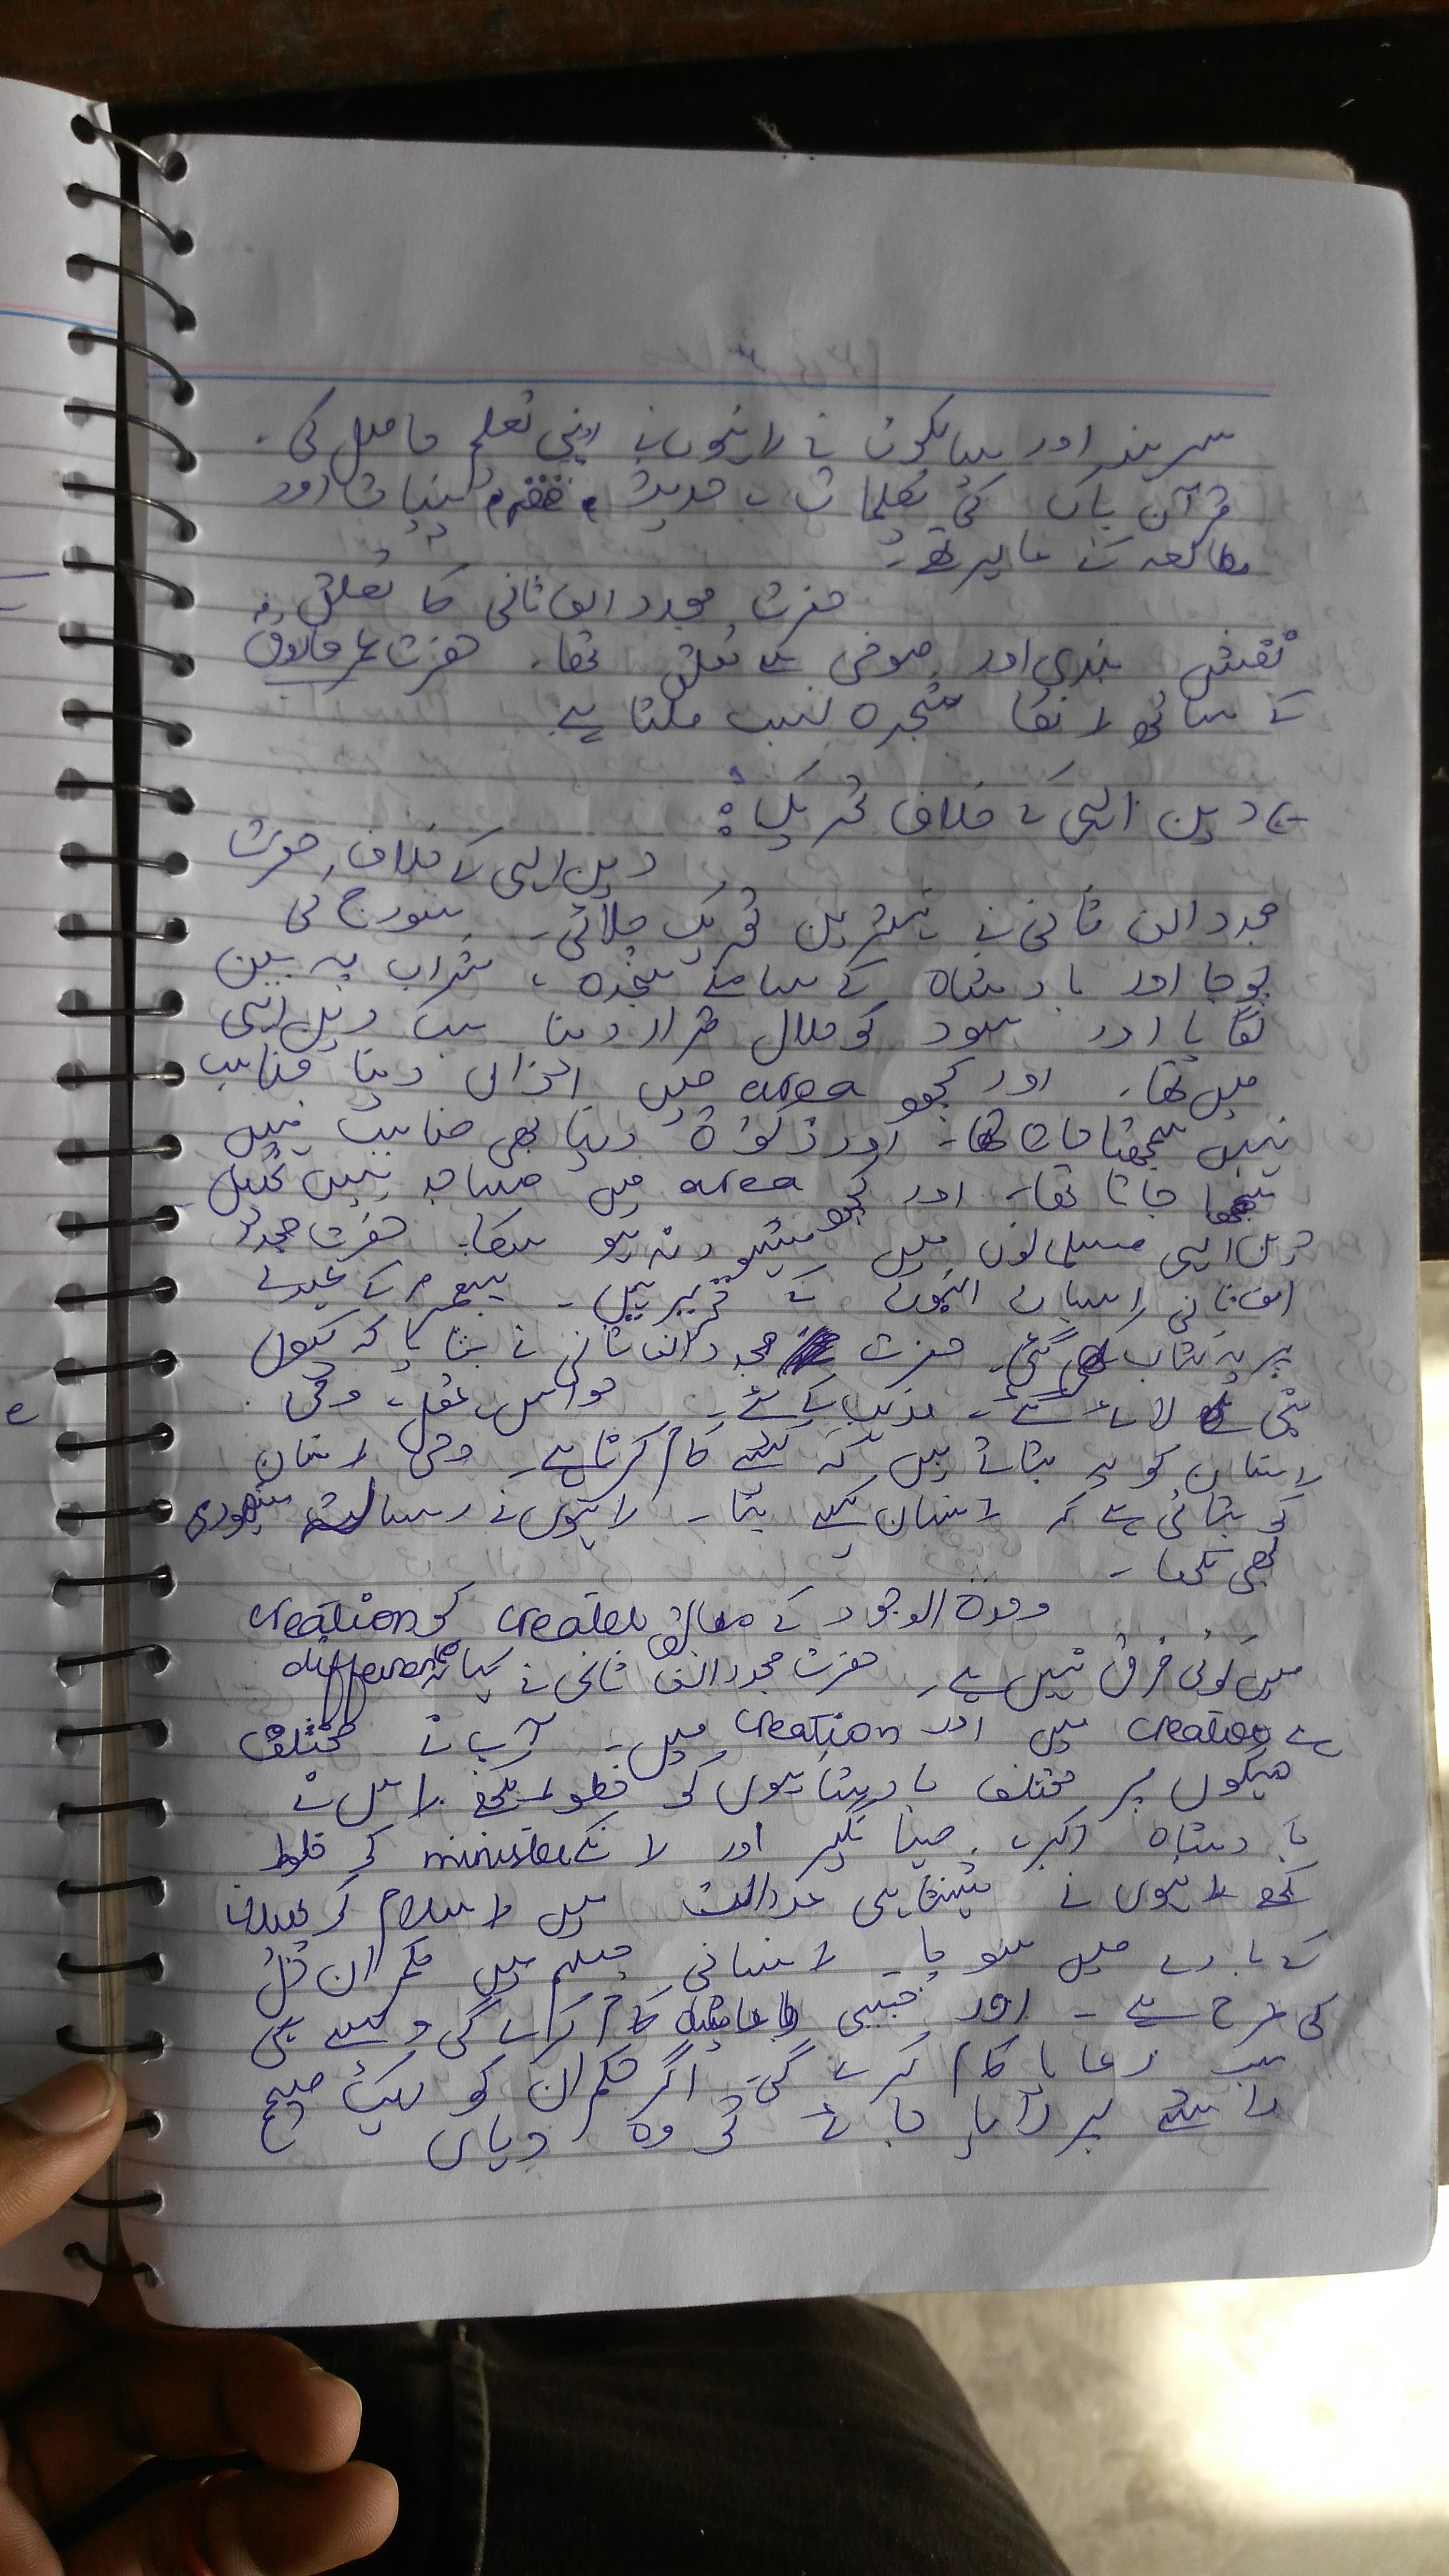 سرہند اور سیالکوٹ نے انہوں نے اپنی تعلیم حاصل کی۔
قرآن پاک کی تعلیمات، حدیث، فقہ، اور
مطالعہ کے ماہر تھے۔
حضرت مجدد الف ثانی کا تعلق
نقش بندی اور صوفی سے تعلق تھا۔ حضرت عمر فاروقؓ
کے ساتھ انکا شجرہ نسب ملتا ہے۔
دین الہی کے خلاف تحریک:
دین الہی کے خلاف حضرت
مجدد الف ثانی نے بہترین تحریک چلائی۔ سورج کی
پوجا اور بادشاہ کے سامنے سجدہ، شراب پہ بین
لگایا اور سود کو حلال قرار دینا سب دین الہی
میں تھا۔ اور کچھ area میں اذان دینا مناسب
نہیں سمجھا جاتا تھا۔ اور زکوٰۃ دینا بھی مناسب نہیں
سمجھا جاتا تھا۔ اور کچھ area میں مساجد نہیں تھیں
دین الہی مسلمانوں میں مشہور نہ ہو سکا۔ حضرت مجدد
الف ثانی انہوں کے پیغمبر کے
پر یہ کتاب لکھی گئی۔ حضرت مجدد الف ثانی نے بتایا کہ کیوں
نبی لائے گئے۔ مذہب کے لئے۔ حواس، عقل، وحی
انسان کو یہ بتاتے ہیں کہ کیسے کام کرتا ہے۔ وحی انسان
کو بتاتی ہے کہ انسان کیسے بنا۔ انہوں نے رسالت
بھی لکھا۔
وحدۃ الوجود کے مطابق creater کو creation
میں کوئی فرق نہیں ہے۔ حضرت مجدد الف ثانی نے کہا کہ different
ہے creater میں اور creation میں۔ آپ نے مختلف
جگہوں پر مختلف بادشاہوں کو خطوط لکھے۔ اس نے
بادشاہ اکبر، جہانگیر اور انکے minister کو خطوط
لکھے انہوں نے شہنشاہی عدالت میں اسلام کو پھیلانے
کے بارے میں سوچا۔ انسانی جسم میں حکمران دل
کی طرح ہے۔ اور جیسی کام کرے گی ویسے ہی
سب رعایا کام کرے گی۔ اگر حکمران کو ایک صحیح
راستے پر لایا جائے تو وہ